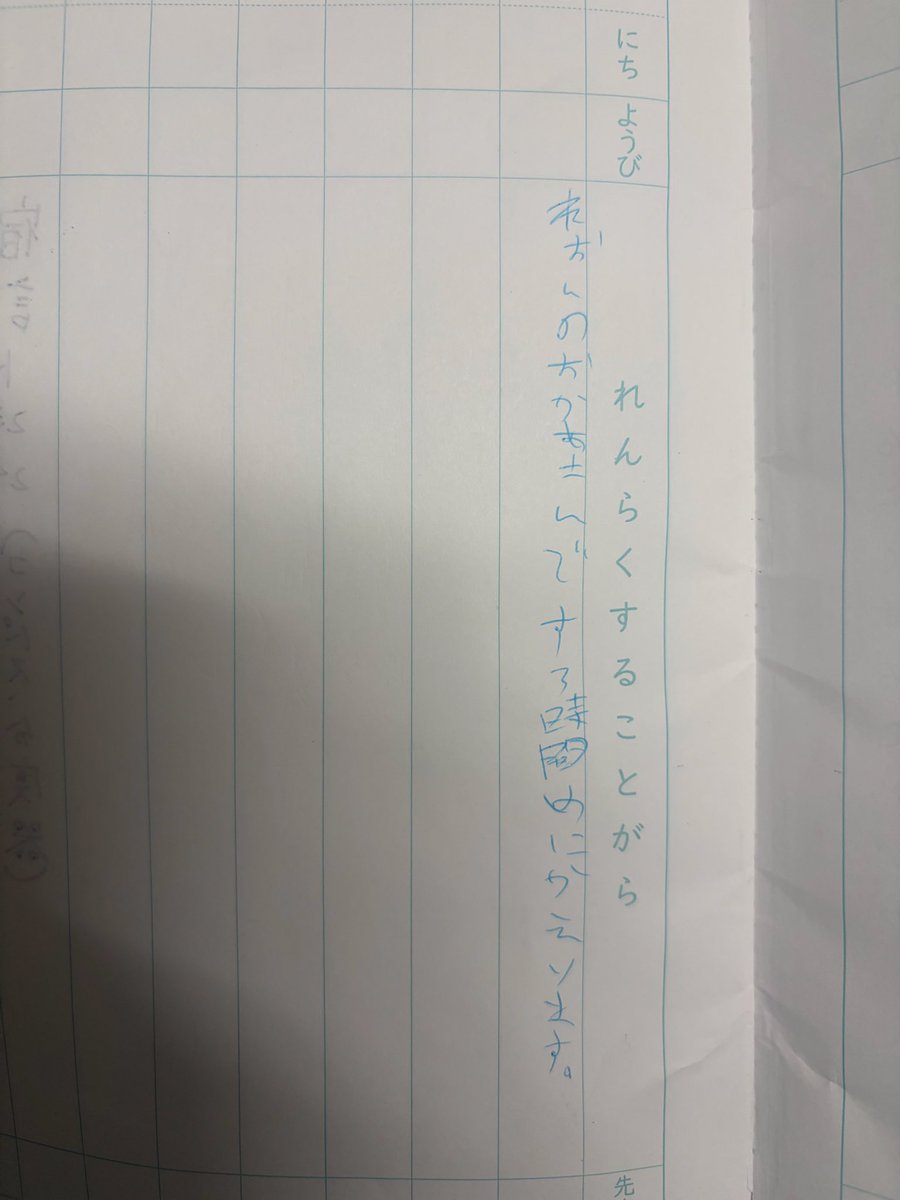 にち
ようび
れんらくすることがら
先
れおんのおかあさんです3時間めにかえります。